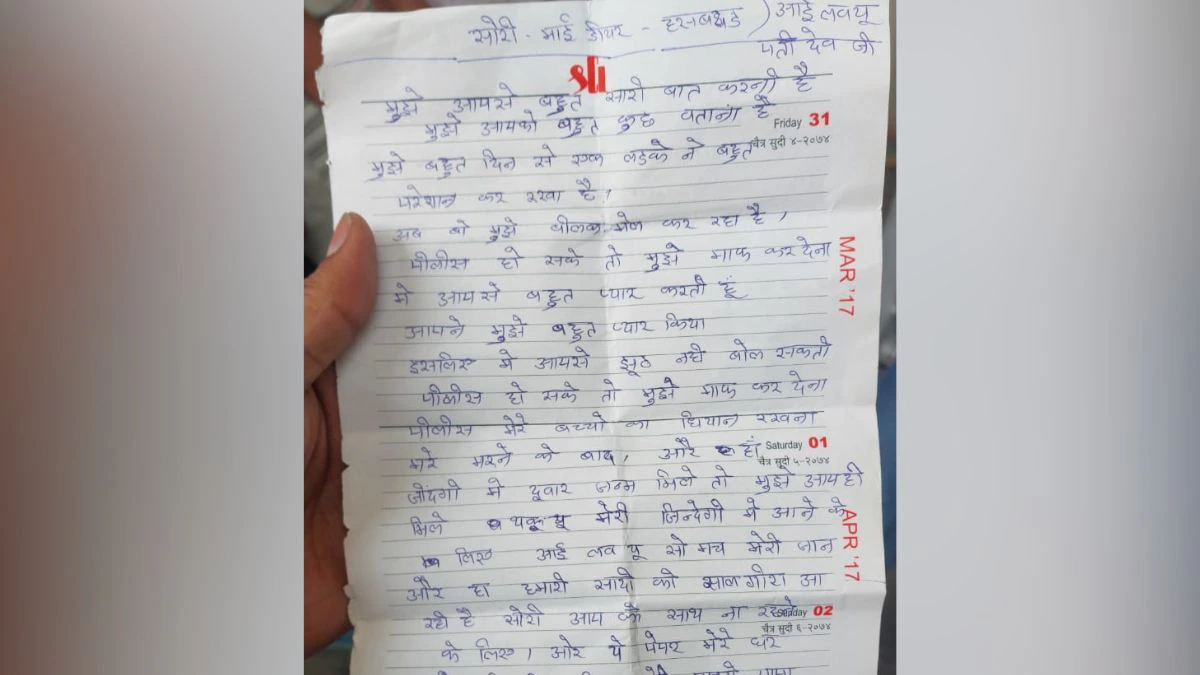 सोरी - माई डीयर - हसबण्ड ) आई लव यू
पती देव जी
sli
मुझे आपसे बहुत सारी बात करनी है
मुझे आपको बहुत कुछ बताना है
Friday 31
चैत्र सुदी ४-२०७४
मुझे बहुत दिन से एक लडके ने बहुत
परेशान कर रखा है,
अब वो मुझे बीलक मेल कर रहा है,
पीलीस हो सके तो मुझे माफ कर देना
MAR '17
मे आपसे बहुत प्यार करती हूं
आपने मुझे बहुत प्यार किया
इसलिए मे आपसे झूठ नही बोल सकती
पीलीस हो सके तो मुझे माफ कर देना
पीलीस मेरे बच्चो का धियान रखना
Saturday 01
चैत्र सुदी ५-२०७४
मेरे मरने के बाद, और हां
जींदगी मे दूवार जन्म मिले तो मुझे आप ही
मिले थैंकू यू मेरी जिन्देगी मे आने के
APR '17
लिए आई लव यू सो मच मेरी जान
और हा हमारी सादी की साल गीरा आ
रही है सोरी आप के साथ ना रहने
02
चैत्र सुदी ६-२०७४
के लिए, ओर ये पेपर मेरे घर